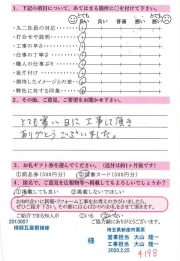 1. 下記の項目について、あてはまる箇所に○を付けて下さい。
とても良い 良い 普通 悪い とても悪い
・丸二社員の対応
・打合せや説明
・工事の早さ
・仕事の丁寧さ
・職人の仕事ぶり
・後片付け
・期待したイメージとの差
・弊社に対する印象
2. その他、ご意見、ご希望をお聞かせ下さい。
とても寒い日に工事して頂き
ありがとうございました。
3. お礼ギフト券を選んでください。(送付は約1ヶ月後です)
①商品券(500円) ②図書カード(500円)
4. 匿名で、ご意見を広告物等へ掲載してもよろしいでしょうか?
①掲載しても良い ②掲載しないでほしい
お知り合いに新築・リフォーム工事をお考えの方がいましたら、
ぜひご紹介下さい。その際には心ばかりのお礼を致します。
ご紹介できる知人が いる いない
ご協力誠にありがとうございます。
2013007
様
埼玉県新座市栗原
営業担当 大山 隆一
工事担当 大山 隆一
2020.2.25
4198